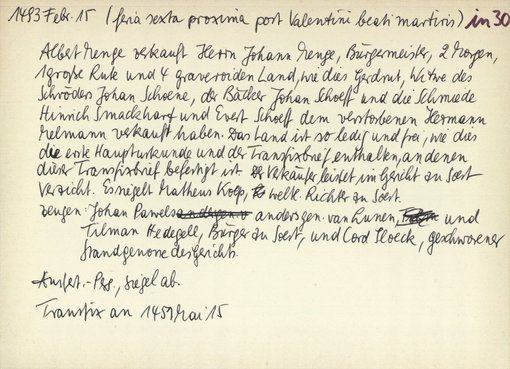 1483 Febr. 15 (feria sexta proxima post Valentini beati martiris) in 30
Albert Menge verkauft Herrn Johann Menge, Bürgermeister, 2 Morgen,
1 große Rute und 4 Land, wie dies Gerdrut, Witwe des
Schröders Johan Schoene, der Bäcker Johan Schoeff und die Schmiede
Hinrich Smackhart und Evert Schoeff dem verstorbenen Hermann
verkauft haben. Das Land ist so ledig und frei, wie dies
die erste Haupturkunde und der Transfixbrief enthalten, an denen
dieser Transfixbrief befestigt ist. Verkäufer leistet im Gericht zu Soest
Verzicht. Es siegelt Matheus Koep, weltl. Richter zu Soest.
Zeugen: Johan Pawels anders gen. van Lunen, und
Tilman Hedegell, Bürger zu Soest, und Cord Floeck, geschworener
Standgenosse des Gerichts.
Ausfert.-Perg., Siegel ab.
Transfix an 1459 Mai 15